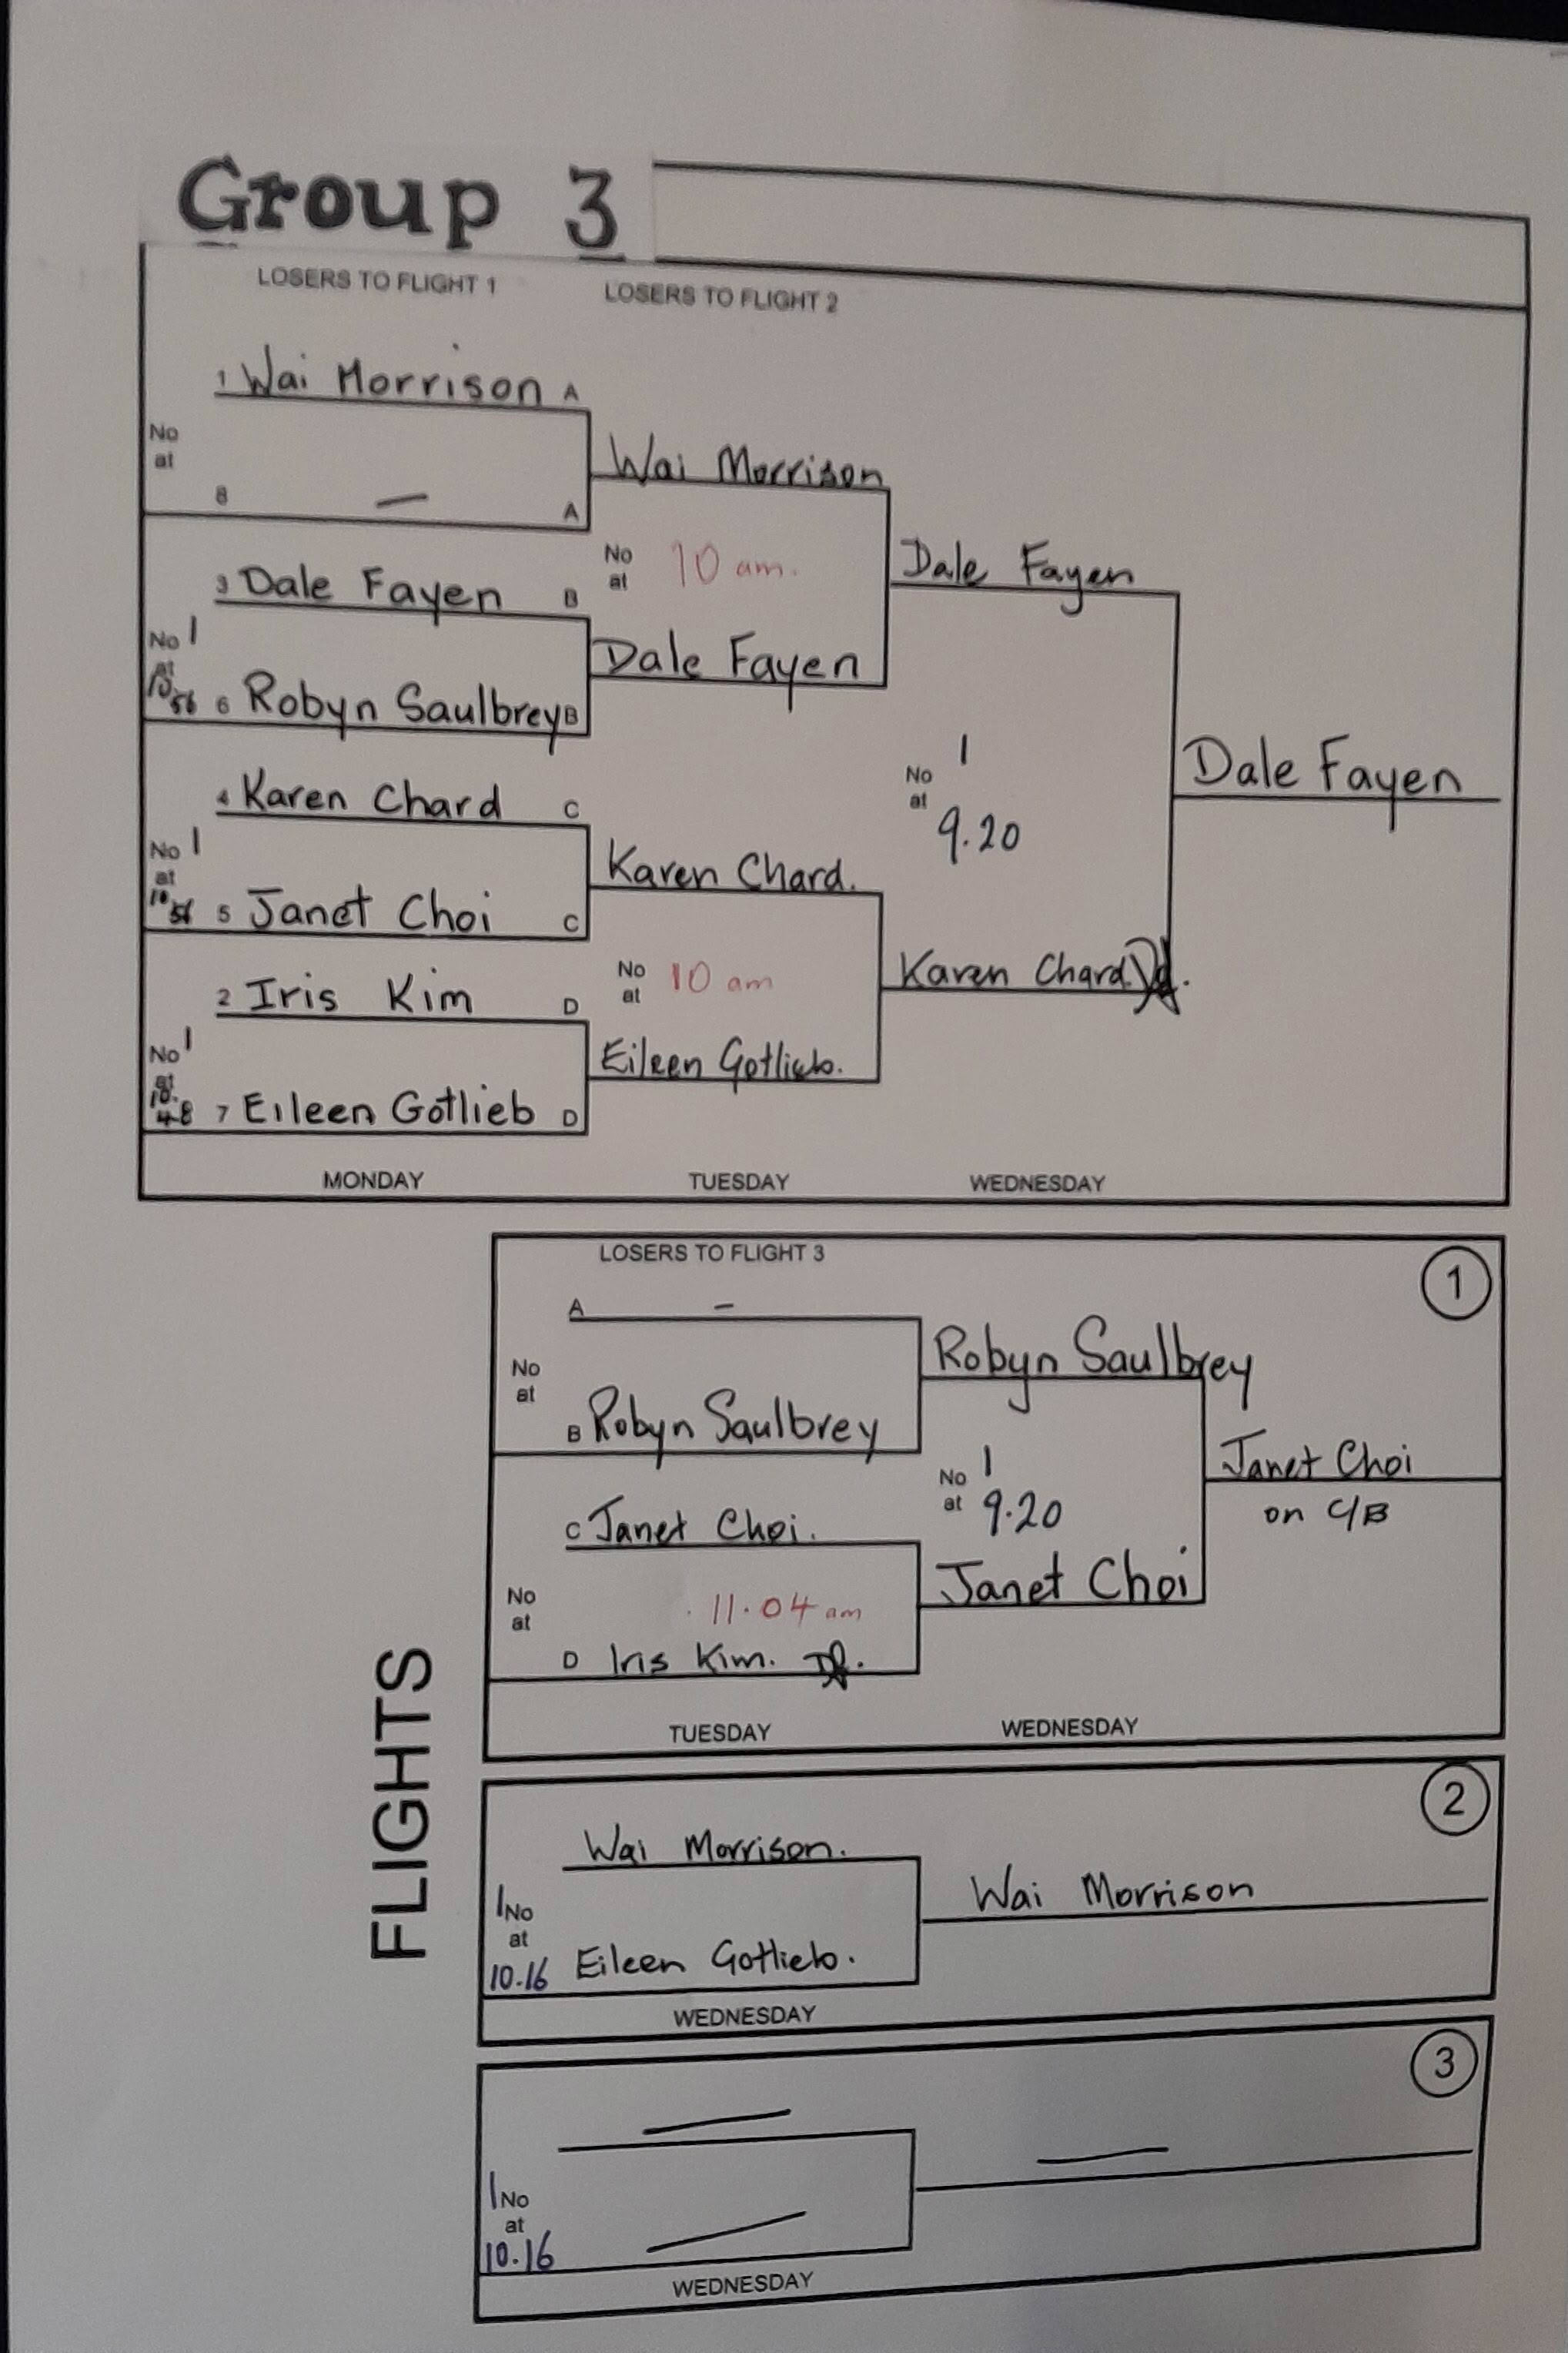 Group 3
LOSERS TO FLIGHT 1
LOSERS TO FLIGHT 2
1 Wai Morrison A
No
at
8 — A
Wai Morrison
3 Dale Fayen B
No 1
at
10.56
6 Robyn Saulbrey B
No
at 10 am.
Dale Fayen
Dale Fayen
4 Karen Chard C
No 1
at
10.56
5 Janet Choi C
Karen Chard.
No 1
at 9.20
Dale Fayen
2 Iris Kim D
No 1
at
10.48
7 Eileen Gotlieb D
No
at 10 am
Eileen Gotlieb.
Karen Chard
MONDAY
TUESDAY
WEDNESDAY
FLIGHTS
1
LOSERS TO FLIGHT 3
A –
No
at
B Robyn Saulbrey
Robyn Saulbrey
C Janet Choi.
No
at 11.04 am
D Iris Kim.
No 1
at 9.20
Janet Choi
Janet Choi
on C/B
TUESDAY
WEDNESDAY
2
Wai Morrison.
1 No
at
10.16
Eileen Gotlieb.
Wai Morrison
WEDNESDAY
3
—
1 No
at
10.16
—
—
WEDNESDAY